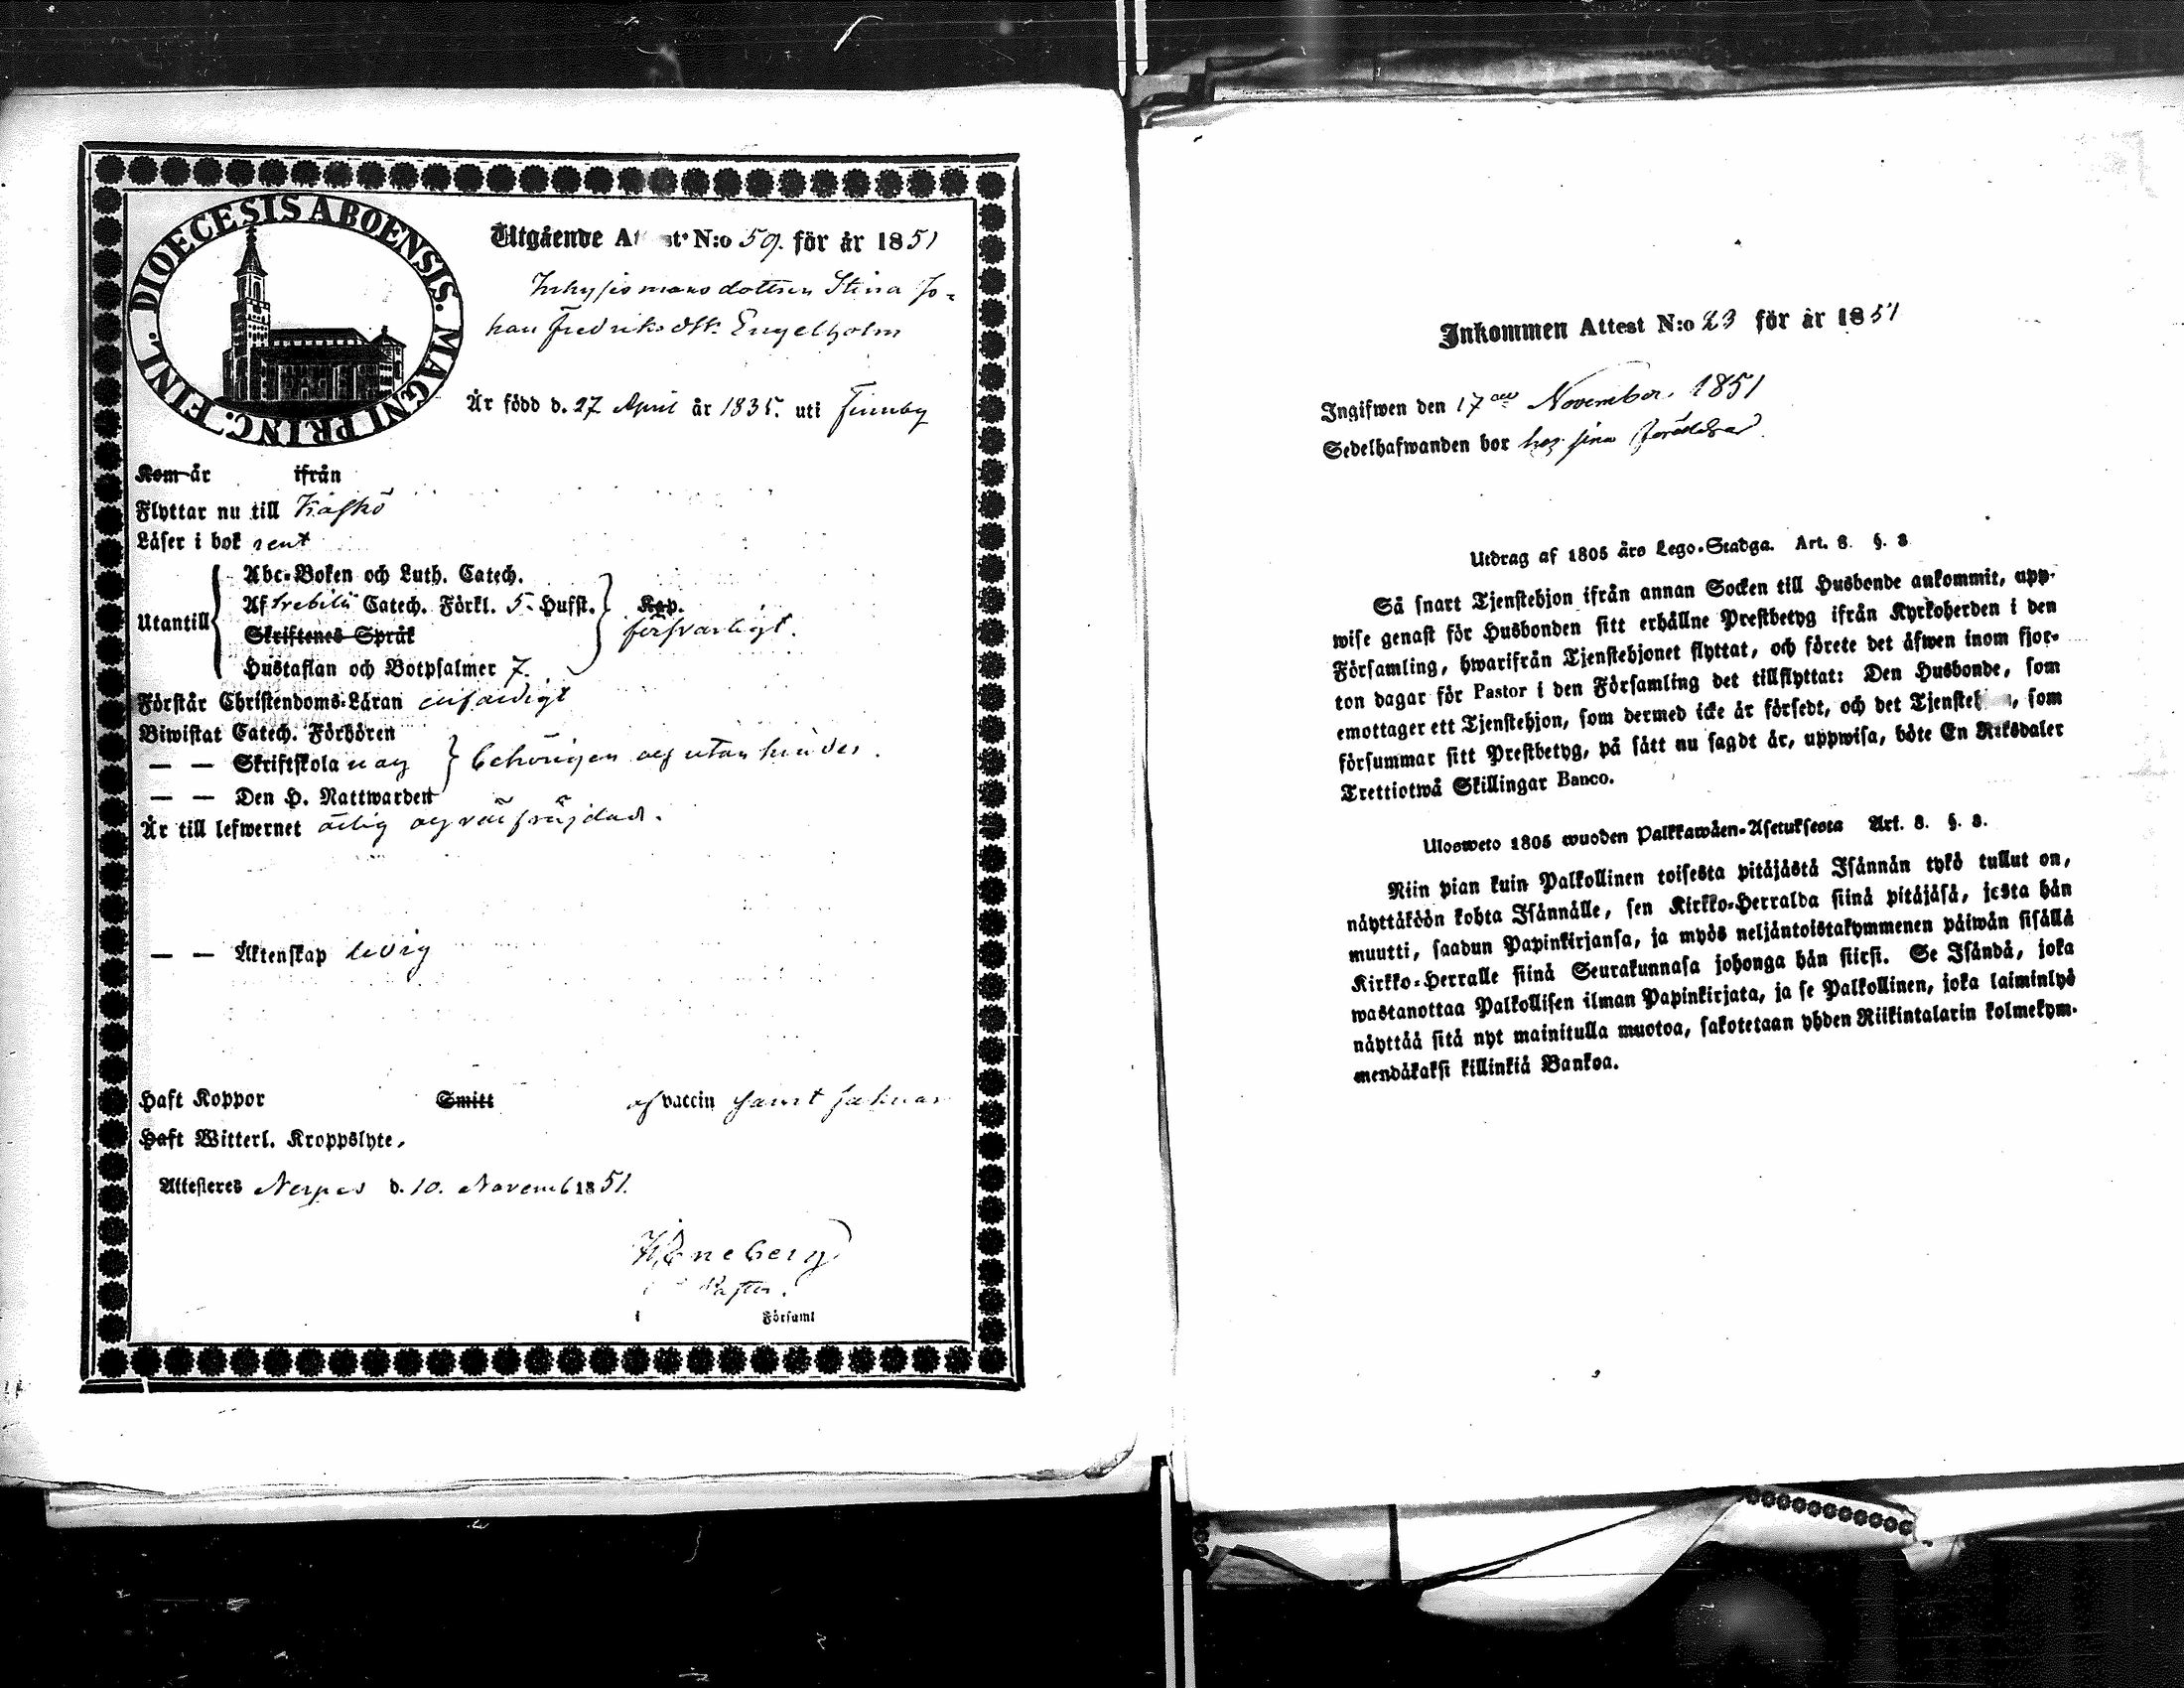 DIOECESIS ABOENSIS. MAGNI PRINC. FINL.
Utgående At st. N:o 59. för år 1851
Inhysesmans dottren Stina Jo-
han Fredriksdtr Engelholm
Är född d. 27 April år 1835. uti Finnby
Kom år ifrån
Flyttar nu till Kaskö
Läser i bok rent
Utantill
Abc-Boken och Luth. Catech.
Af Svebilii Catech. Förkl. 5. Hufst.
Skriftenes Språk
Hustaflan och Botpsalmer 7.
Kap.
försvarligt.
Förstår Christendoms-Läran enfaldigt
Biwistat Catech. Förhören
— — Skriftskola
— — Den H. Nattwarden
behörigen och utan hinder.
Är till lefwernet ärlig och väl fräjdad.
— — Äktenskap ledig
Haft Koppor Smitt af vaccin samt
Haft Witterl. Kroppslyte,
Attesteres Nerpes d. 10. Novemb 1851.
Pastor.
i Församl
Inkommen Attest N:o 23 för år 1851
Ingifwen den 17de November. 1851
Sedelhafwanden bor hos sina föräldrar
Utdrag af 1805 års Lego-Stadga. Art. 8. §. 8
Så snart Tjenstehjon ifrån annan Socken till Husbonde ankommit, upp-
wise genast för Husbonden sitt erhållne Prestbetyg ifrån Kyrkoherden i den
Församling, hwarifrån Tjenstehjonet flyttat, och förete det äfwen inom fjor-
ton dagar för Pastor i den Församling det tillflyttat: Den Husbonde, som
emottager ett Tjenstehjon, som dermed icke är försedt, och det Tjensteh n, som
försummar sitt Prestbetyg, på sätt nu sagdt är, uppwisa, böte En Riksdaler
Trettiotwå Skillingar Banco.
Ulosweto 1805 wuoden Palkkawäen-Asetuksesta Art. 8. §. 8.
Niin pian kuin Palkollinen toisesta pitäjästä Isännän tykö tullut on,
näyttäköön kohta Isännälle, sen Kirkko-Herralda siinä pitäjäsä, josta hän
muutti, saadun Papinkirjansa, ja myös neljäntoistakymmenen päiwän sisällä
Kirkko-Herralle siinä Seurakunnasa johonga hän siirsi. Se Isändä, joka
wastanottaa Palkollisen ilman Papinkirjata, ja se Palkollinen, joka laiminlyö
näyttää sitä nyt mainitulla muotoa, sakotetaan yhden Riikintalarin kolmekym-
mendäkaksi killinkiä Bankoa.